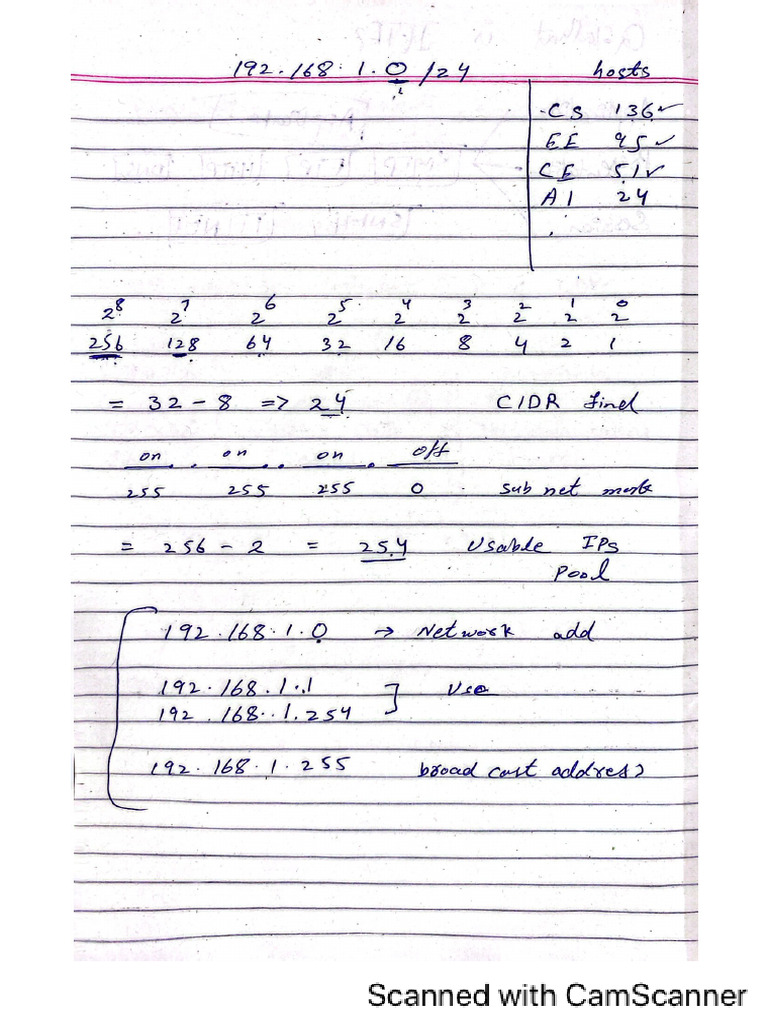 192.168.1.0/24 hosts
CS 136✓
EE 95✓
CE 51✓
AI 24
2⁸ 2⁷ 2⁶ 2⁵ 2⁴ 2³ 2² 2¹ 2⁰
256 128 64 32 16 8 4 2 1
= 32 - 8 => 24 CIDR find
on . on . on . off
255 255 255 0 Sub net mask
= 256 - 2 = 254 Usable IPs
Pool
192.168.1.0 → Network add
192.168.1.1 ] Use
192.168.1.254
192.168.1.255 broad cast address
Scanned with CamScanner